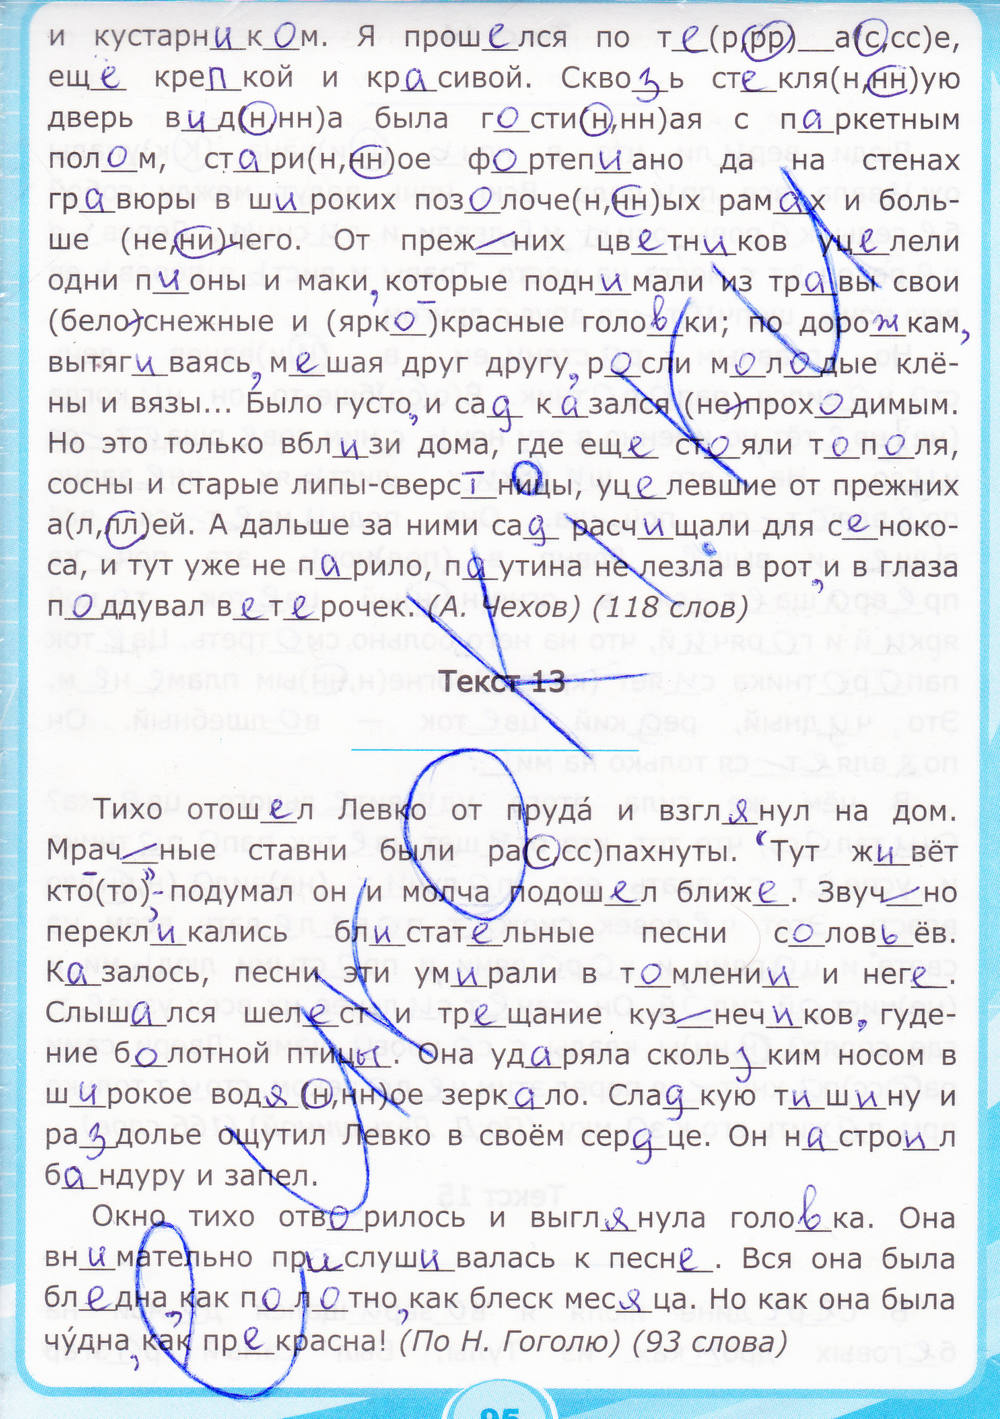 и кустарником. Я прошелся по те(р,рр)__а(с,сс)е,
еще крепкой и красивой. Сквозь стекля(н,нн)ую
дверь вид(н,нн)а была гости(н,нн)ая с паркетным
полом, стари(н,нн)ое фортепиано да на стенах
гравюры в широких позолоче(н,нн)ых рамах и боль-
ше (не,ни)чего. От преж__них цветников уцелели
одни пионы и маки, которые поднимали из травы свои
(бело)снежные и (ярко)красные головки; по дорожкам,
вытягиваясь, мешая друг другу, росли молодые клё-
ны и вязы... Было густо, и сад казался (не)проходимым.
Но это только вблизи дома, где еще стояли тополя,
сосны и старые липы-сверстницы, уцелевшие от прежних
а(л,лл)ей. А дальше за ними сад расчищали для сеноко-
са, и тут уже не парило, паутина не лезла в рот, и в глаза
поддувал ветерочек. (А. Чехов) (118 слов)
Текст 13
Тихо отошел Левко от пруда́ и взглянул на дом.
Мрач__ные ставни были ра(с,сс)пахнуты. "Тут живёт
кто(то)", - подумал он и молча подошел ближе. Звуч__но
перекликались блистательные песни соловьёв.
Казалось, песни эти умирали в томлении и неге.
Слышался шелест и трещание куз__нечиков, гуде-
ние болотной птицы. Она ударяла скользким носом в
широкое водя(н,нн)ое зеркало. Сладкую тишину и
раздолье ощутил Левко в своём сердце. Он настроил
бандуру и запел.
Окно тихо отворилось и выглянула головка. Она
внимательно прислушивалась к песне. Вся она была
бледна, как полотно, как блеск месяца. Но как она была
чу́дна, как прекрасна! (По Н. Гоголю) (93 слова)
95